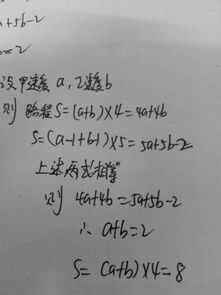 a+5b-2
=2
设甲速度a,乙速度b
则 路程S=(a+b)×4=4a+4b
S=(a-1+b-1)×5=5a+5b-2
上述两式相等
则 4a+4b=5a+5b-2
∴ a+b=2
S=(a+b)×4=8